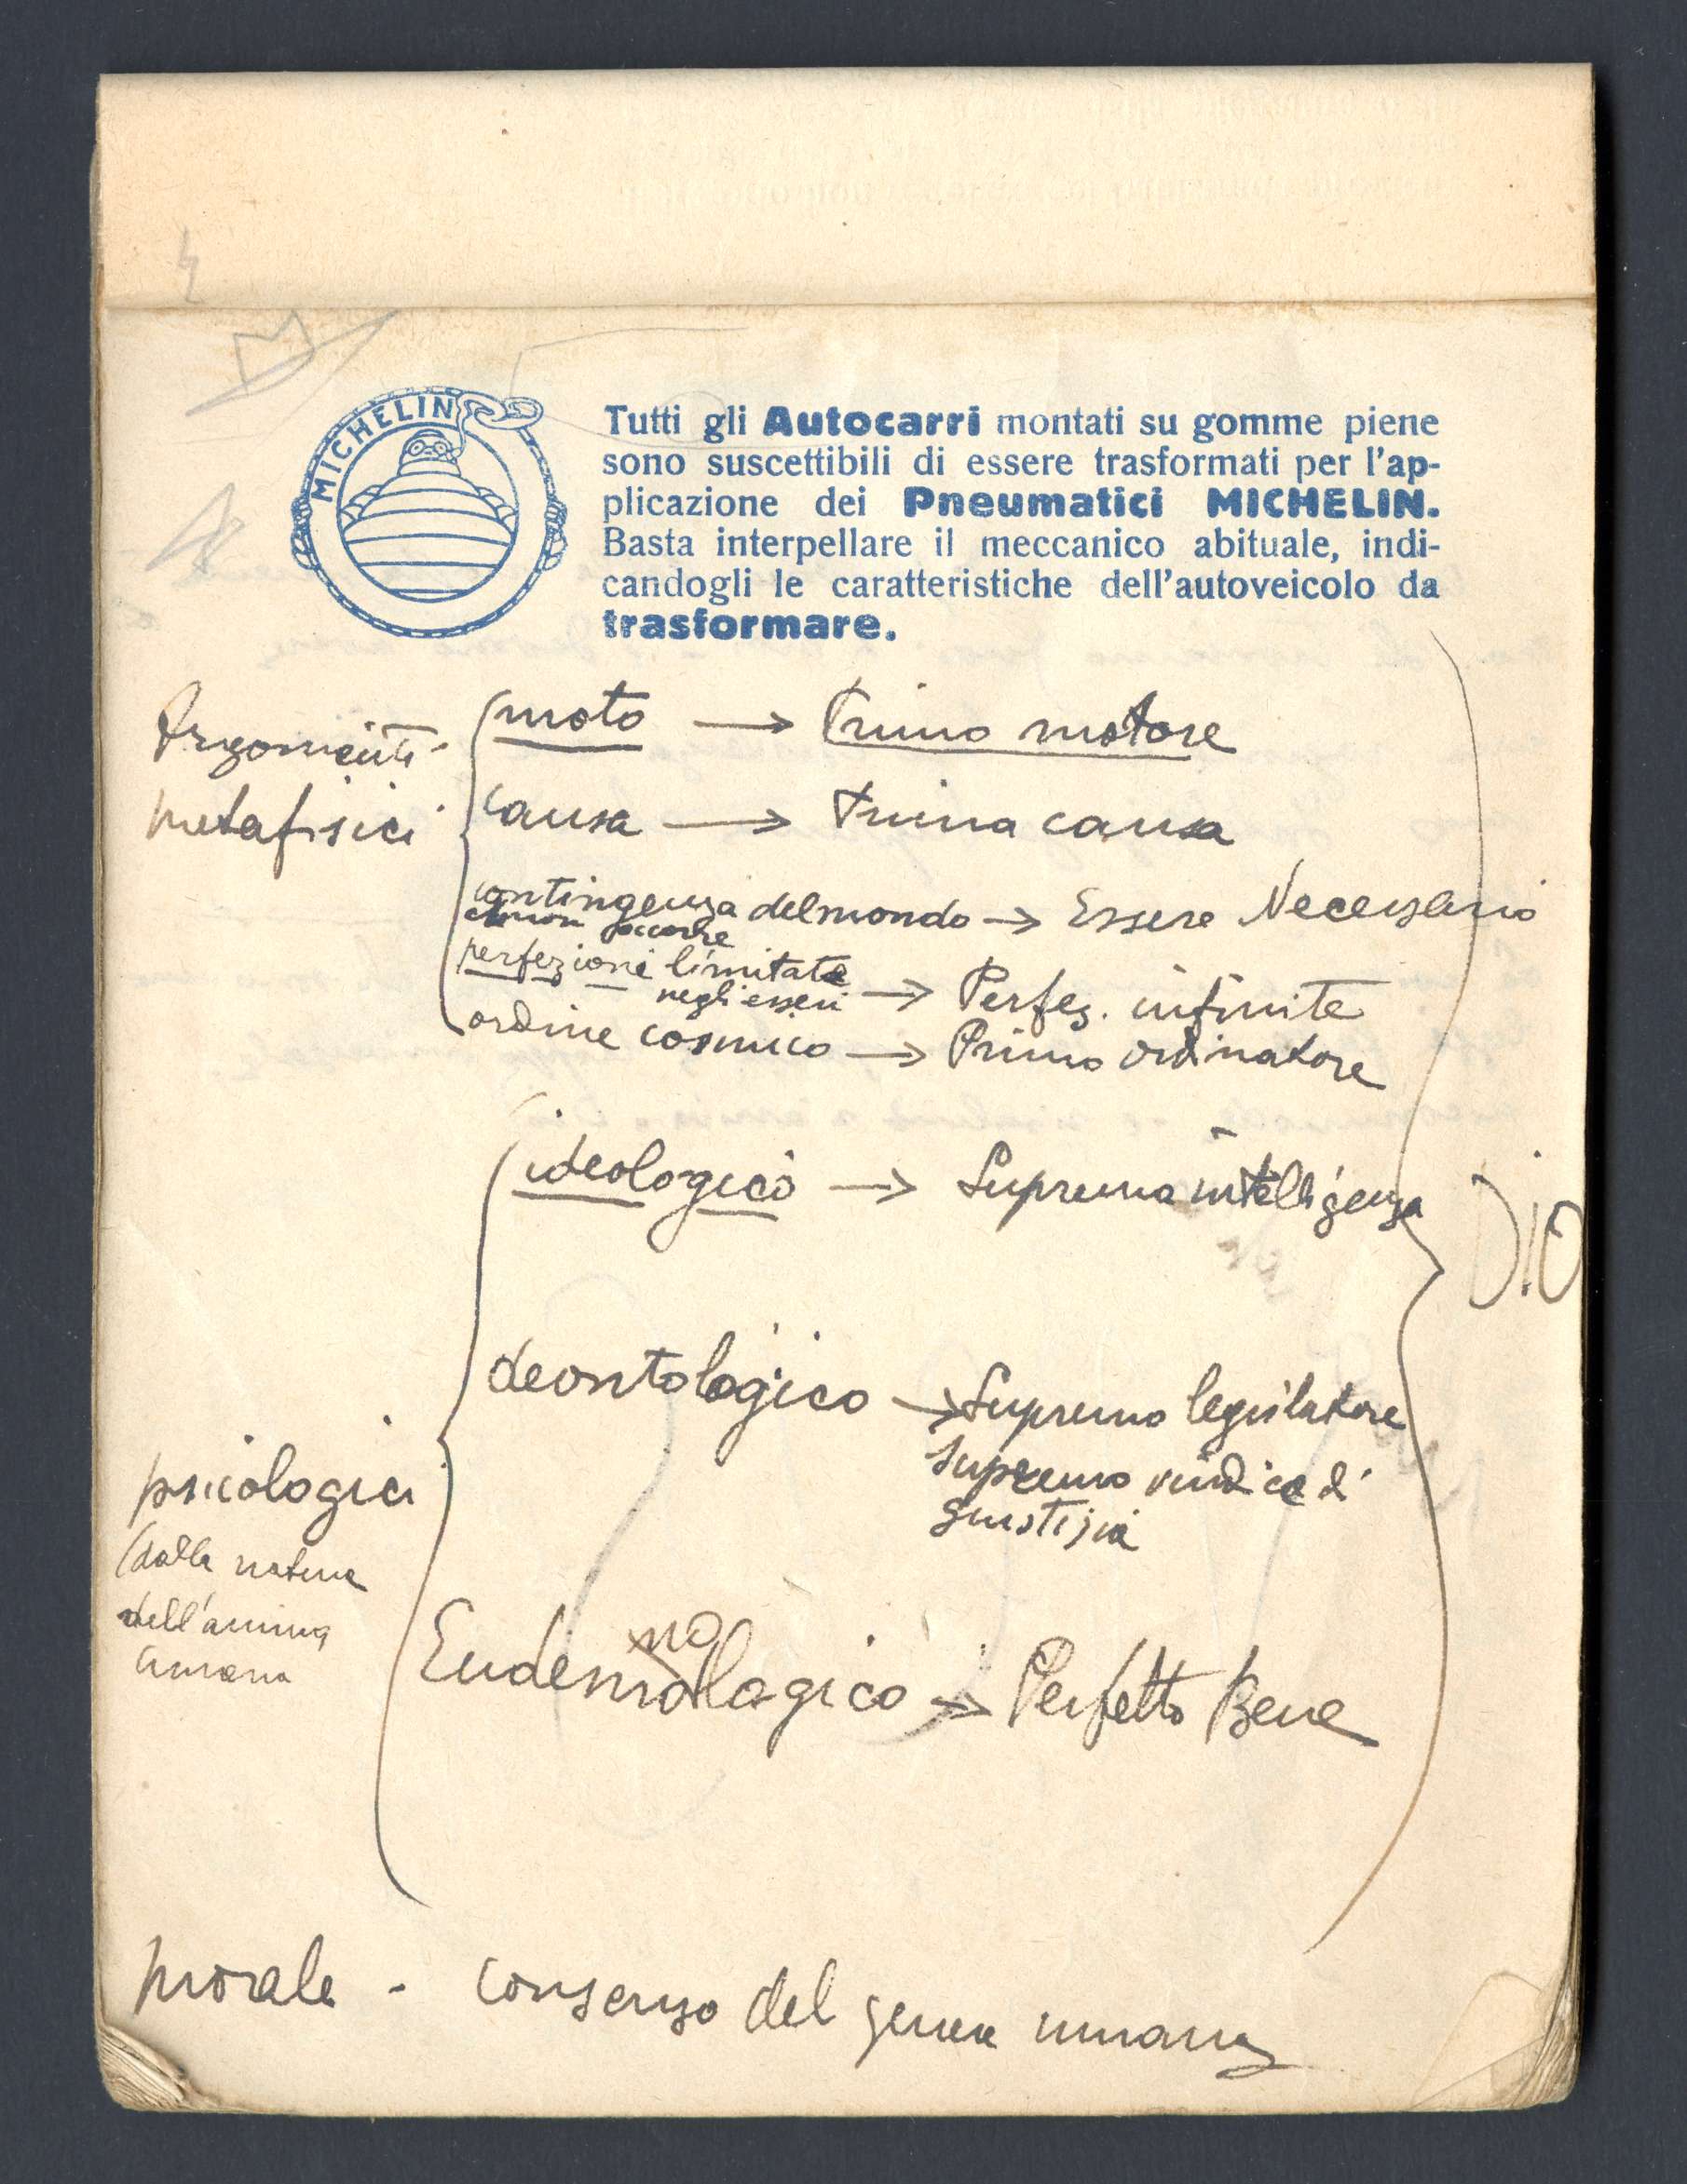 MICHELIN
Tutti gli Autocarri montati su gomme piene
sono suscettibili di essere trasformati per l'ap-
plicazione dei Pneumatici MICHELIN.
Basta interpellare il meccanico abituale, indi-
candogli le caratteristiche dell'autoveicolo da
trasformare.
Argomenti
metafisici
moto → Primo motore
causa → Prima causa
contingenza del mondo → Essere Necessario
perfezioni limitate
negli esseri → Perfez. infinite
ordine cosmico → Primo ordinatore
ideologico → Suprema intelligenza
DIO
deontologico → Supremo legislatore
supremo vindice di
giustizia
psicologici
(dalla natura
dell'anima
umana
no
Eudemologico → Perfetto Bene
morale - consenso del genere umano